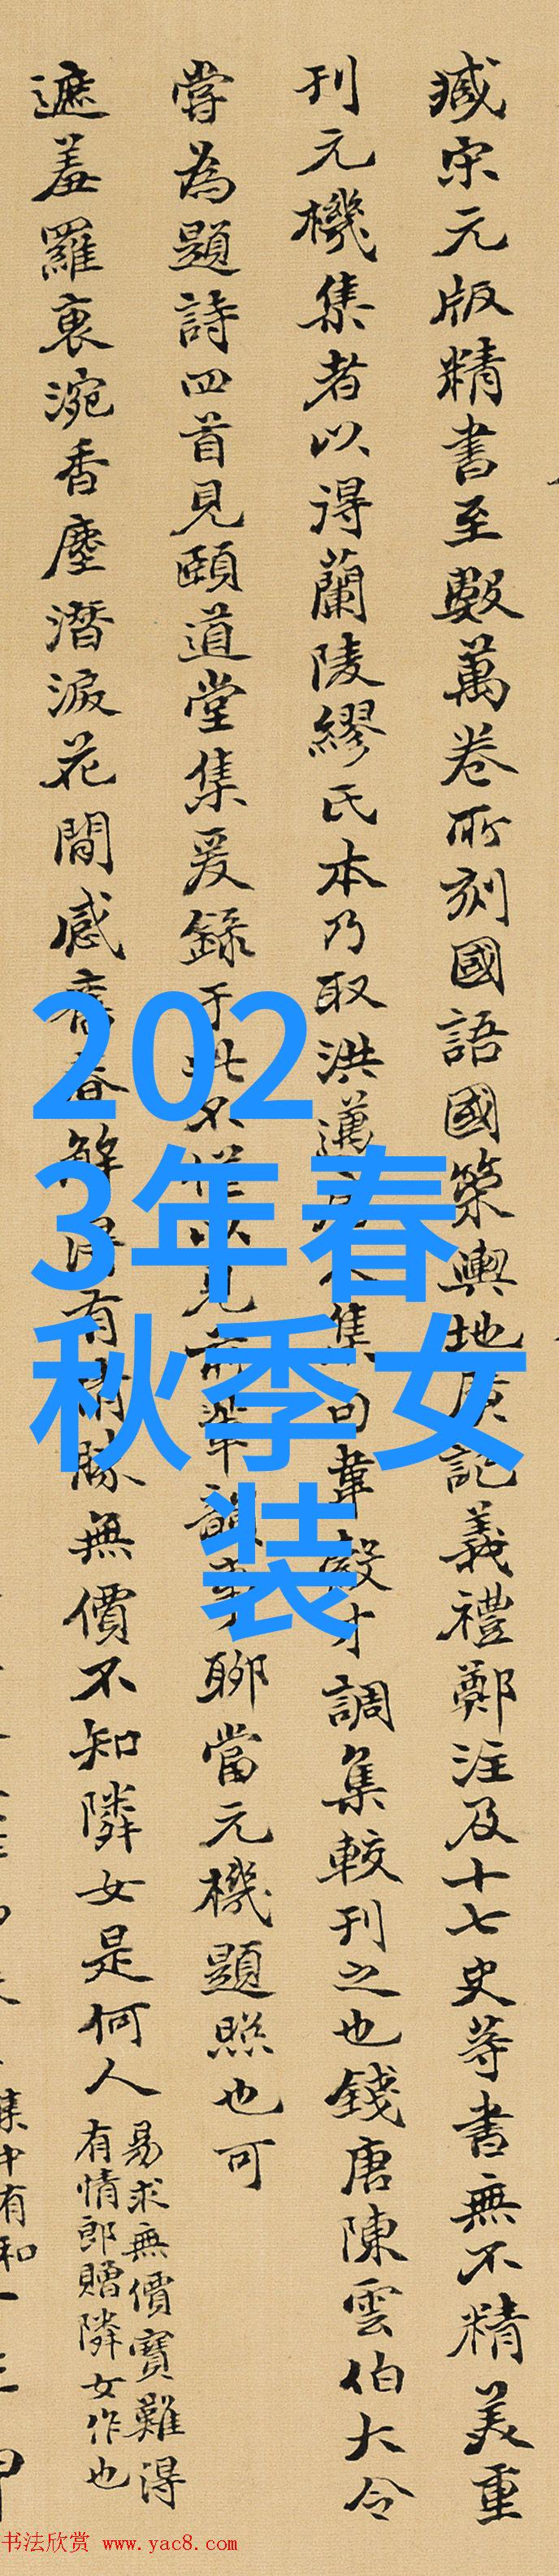 臧宋元版精書至數萬卷所刻國語國策輿地廣記義禮鄭注及十七史等書無不精美重
刊元機集者以得蘭陵繆氏本乃取洪邁集句韋縠才調集較刊之也錢唐陳雲伯大令
嘗為題詩四首見頤道堂集爰錄于此不以見前輩韻事聊當元機題照也可
遮羞羅裹涴香塵潛淚花間感舊春解得有情勝無價不知隣女是何人
易求無價寶難得
有情郎贈隣女作也
集中有和
2023年春秋季女装
书法欣赏 www.yac8.com